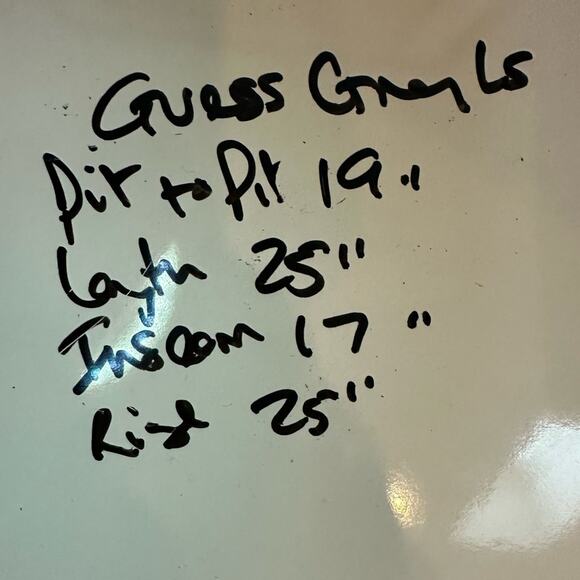 Guess Grey LS
Pit to Pit 19"
Length 25"
Inseam 17"
Rise 25"